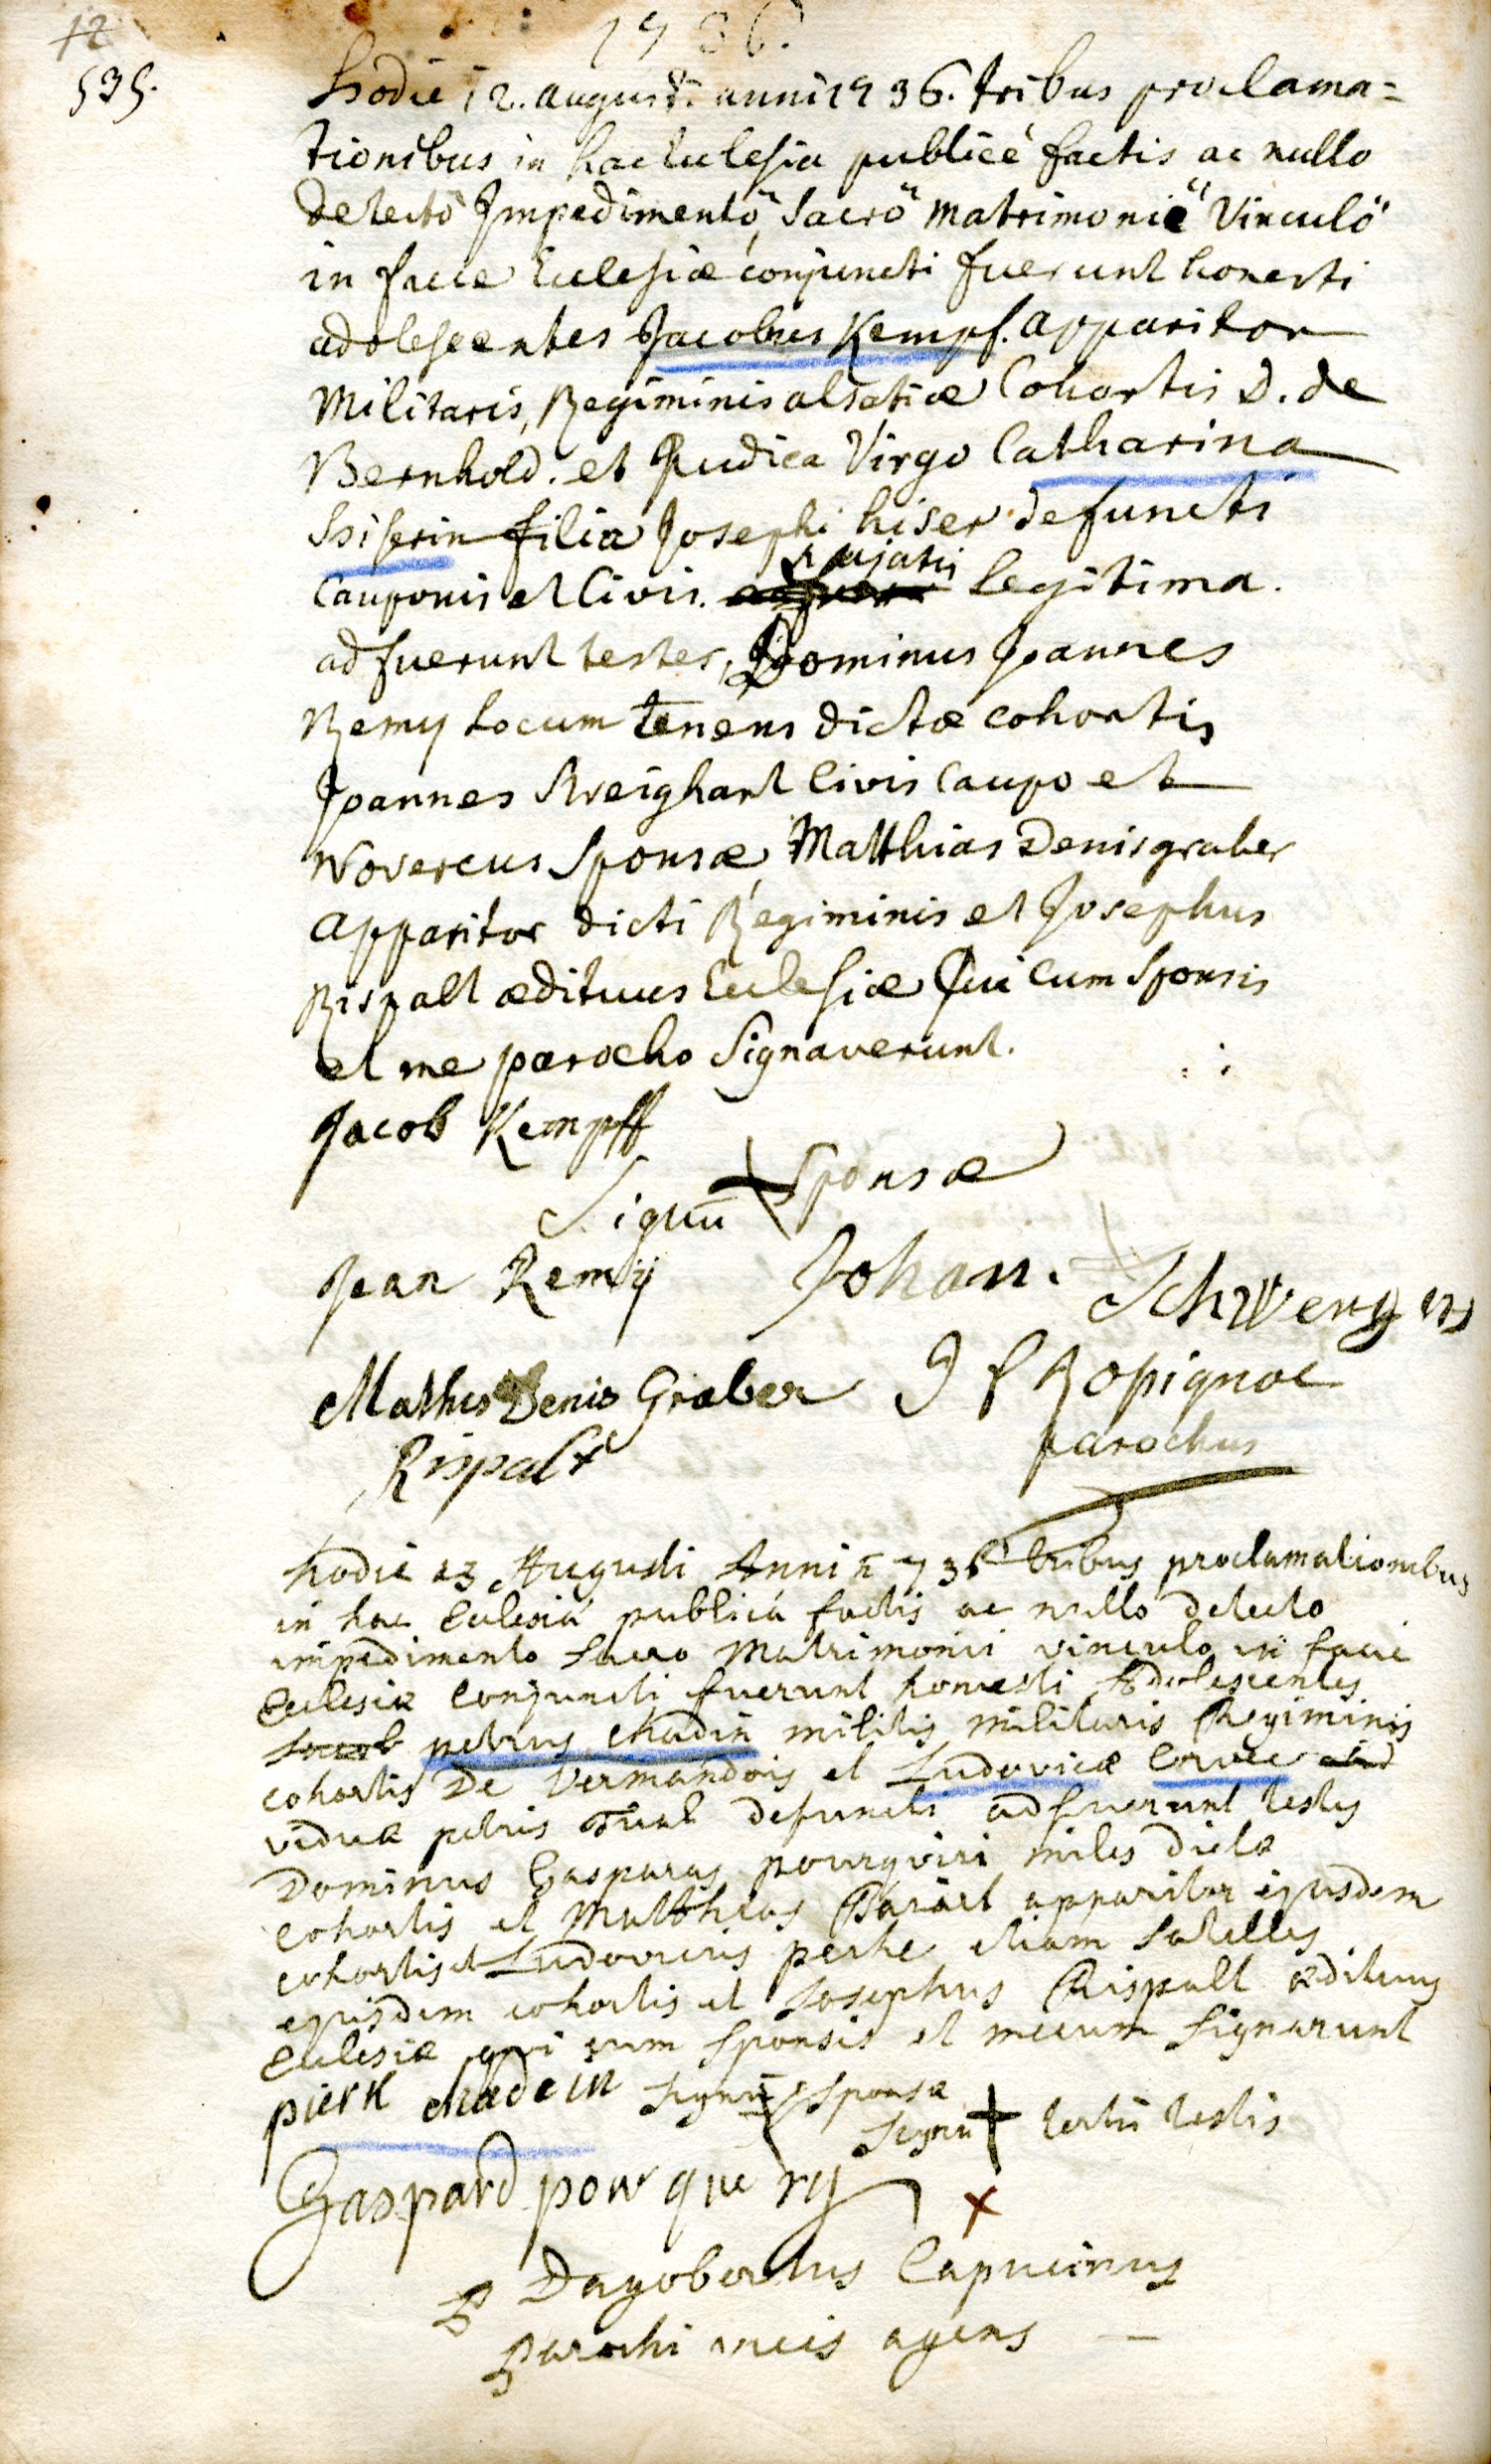 12
535.
1736.
Hodie 12. augusti anni 1736. tribus proclama=
tionibus in hac Ecclesia publicé factis ac nullo
detectö Impedimentö, Sacrö matrimonié Vinculö
in facie Ecclesiæ conjuncti fuerunt honesti
adolescentes Jacobus Kempf. apparitor
Militaris, Regiminis alsatiæ Cohortis D. de
Bernhold. et Pudica Virgo Catharina
Hiserin filia Josephi hiser defuncti
Cauponis et Civis. nujatis legitima.
adfuerunt testes, Dominus Joannes
Remy Locum tenens dictæ cohortis
Joannes Sweighart Civis Caupo et
Novercus Sponsæ, Matthias Denisgraber
apparitor dicti Regiminis et Josephus
Rispalt ædituus Ecclesiæ Qui Cum Sponsis
et me parocho Signaverunt.
Jacob Kempff
Signū + Sponsæ
Jean Remÿ Johan.
Mathis Denis Graber J f Ropignoc
Rispalt parochus
hodie 13 Augusti Anni 1736 tribus proclamationibus
in hac Ecclesiá publicá factis ac nullo detecto
impedimento sacro Matrimonii vinculo in facie
Ecclesiæ Conjuncti fuerunt honesti Adolescentes
Jacob petrus chadin militis militaris Regiminis
cohortis De Vermandois et Ludovicæ
viduæ petris defuncti adfuerunt testes
Dominus Gasparus pourquiri miles dictæ
cohortis et Matthias apparitor ejusdem
cohortis et Ludovicus perhe etiam Satelles
ejusdem cohortis et Josephus Rispalt ædituus
Ecclesiæ qui cum Sponsis et mecum Signarunt
pierre chadein Signū Sponsæ
Signū + tertii testis
Gaspard pour que ry
x
P Dagobertus Capucinus
Parochi vicis agens